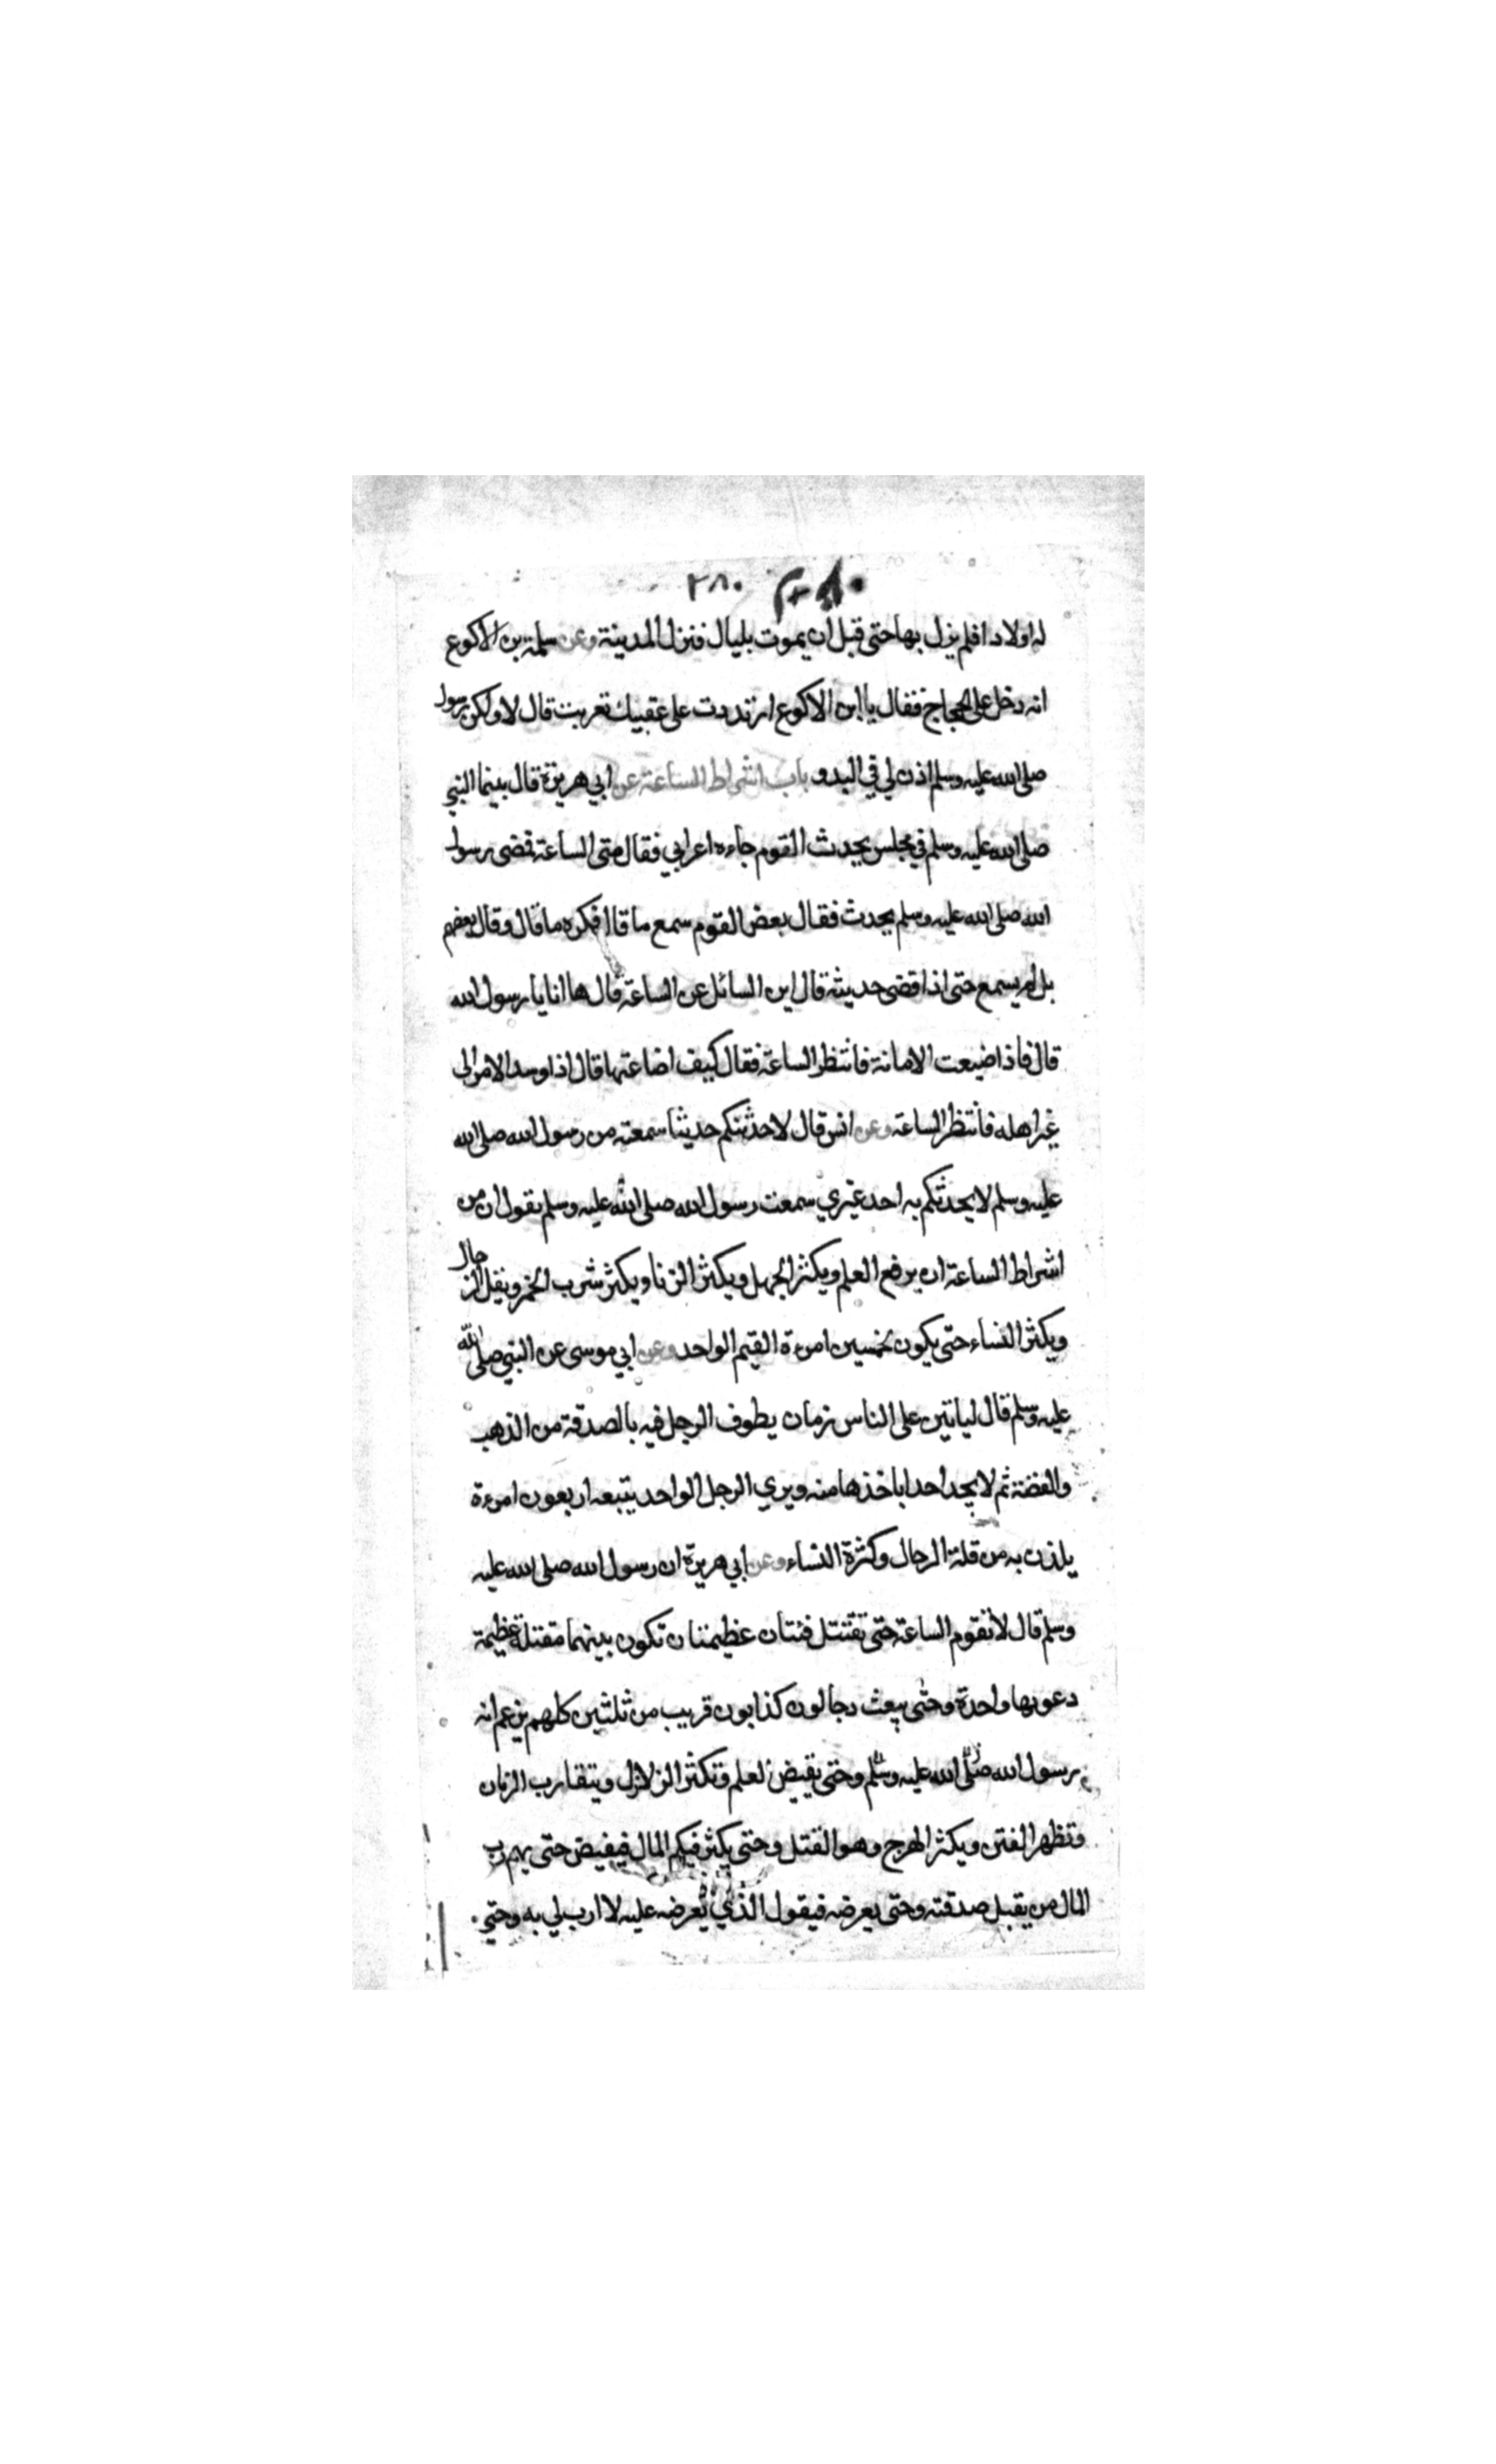 ٢٨٠
له اولادا فلم يزل بها حتى قبل ان يموت بليال فنزل المدينة وعن سلمة بن الاكوع
انه دخل على الحجاج فقال يا ابن الاكوع ارتددت على عقبيك تعربت قال لا ولكن رسول
صلى الله عليه وسلم اذن لي في البدو باب اشراط الساعة عن ابي هريرة قال بينما النبي
صلى الله عليه وسلم في مجلس يحدث القوم جاءه اعرابي فقال متى الساعة فمضى رسول
الله صلى الله عليه وسلم يحدث فقال بعض القوم سمع ما قال فكره ما قال وقال بعضهم
بل لم يسمع حتى اذا قضى حديثه قال اين السائل عن الساعة قال ها انا يا رسول الله
قال فاذا ضيعت الامانة فانتظر الساعة فقال كيف اضاعتها قال اذا وسد الامر الى
غير اهله فانتظر الساعة وعن انس قال لاحدثنكم حديثا سمعته من رسول الله صلى الله
عليه وسلم لا يحدثكم به احد غيري سمعت رسول الله صلى الله عليه وسلم يقول ان من
اشراط الساعة ان يرفع العلم ويكثر الجهل ويكثر الزنا ويكثر شرب الخمر ويقل الرجال
ويكثر النساء حتى يكون لخمسين امرءة القيم الواحد وعن ابي موسى عن النبي صلى الله
عليه وسلم قال لياتين على الناس زمان يطوف الرجل فيه بالصدقة من الذهب
والفضة ثم لا يجد احدا ياخذها منه ويرى الرجل الواحد يتبعه اربعون امرءة
يلذن به من قلة الرجال وكثرة النساء وعن ابي هريرة ان رسول الله صلى الله عليه
وسلم قال لا تقوم الساعة حتى تقتتل فئتان عظيمتان تكون بينهما مقتلة عظيمة
دعوىها واحدة وحتى يبعث دجالون كذابون قريب من ثلثين كلهم يزعم انه
رسول الله صلى الله عليه وسلم وحتى يقبض العلم وتكثر الزلازل ويتقارب الزمان
وتظهر الفتن ويكثر الهرج وهو القتل وحتى يكثر فيكم المال فيفيض حتى يهم رب
المال من يقبل صدقته وحتى يعرضه فيقول الذي يعرضه عليه لا ارب لي به وحتى